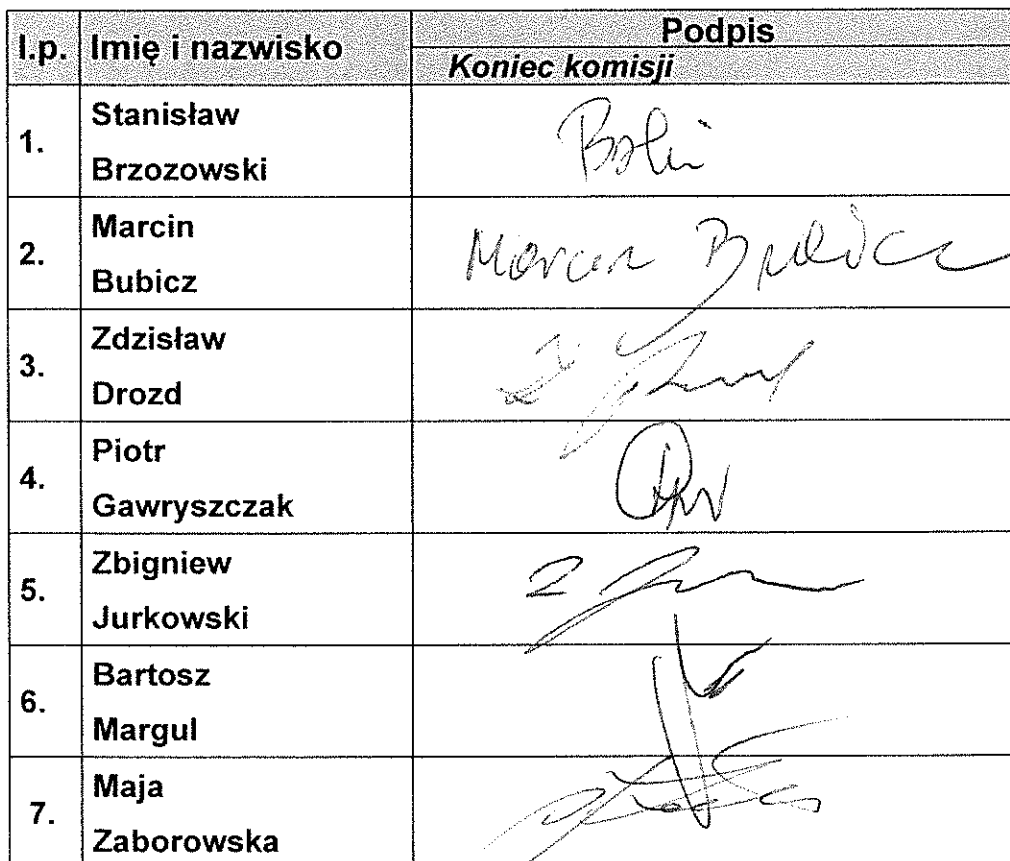 l.p. Imię i nazwisko Podpis
Koniec komisji
1. Stanisław
Brzozowski
2. Marcin
Bubicz
Marcin Bubicz
3. Zdzisław
Drozd
4. Piotr
Gawryszczak
5. Zbigniew
Jurkowski
6. Bartosz
Margul
7. Maja
Zaborowska